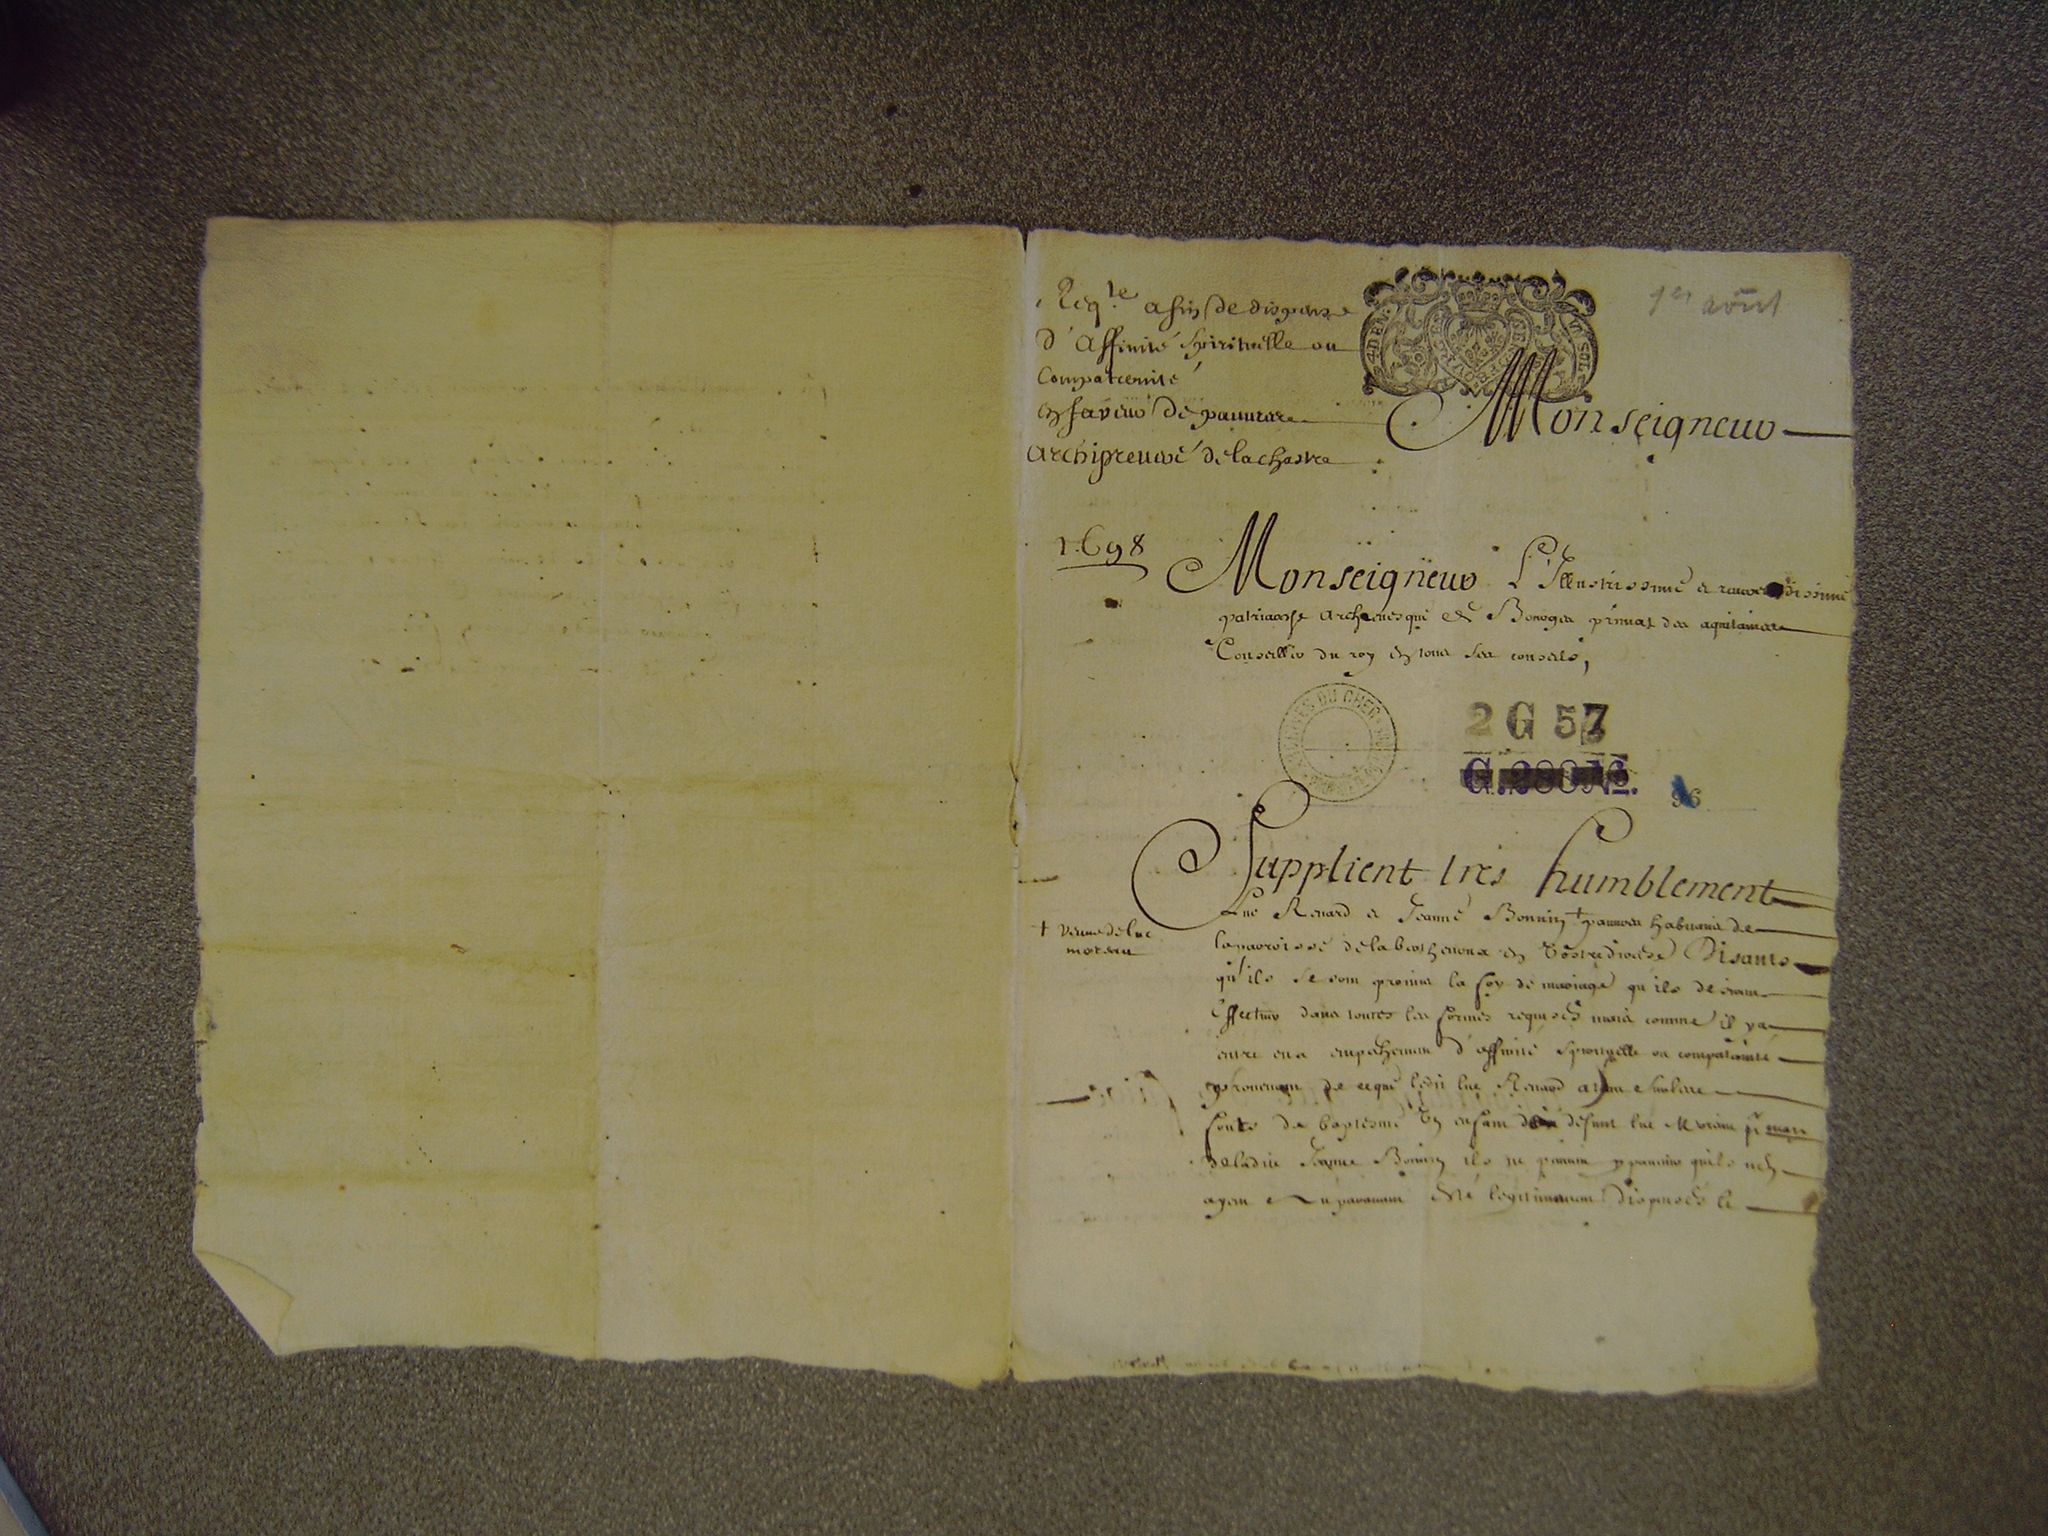 Req.te afin de dispense
d'Affinité Spirituelle ou
Compaternité
en faveur de pauvres
archiprevvé de la chastre
1er août
Monseigneur
1698
Monseigneur L'Illustrissime et reverendissime
patriarche Archevesque de Bourges primat des aquitaines
Conseiller du roy en tous ses conseils,
ARCHIVES DU CHER
2 G 57
96
Supplient tres humblement
Luc Renard et Jeanne Bonnin + pauvres habitans de
+ veuve de luc
moreau
la parroisse de la berthenoux en vostre diocese Disants
qu'ils se sont promis la foy de mariage qu'ils desirent
Effectuer dans toutes les formes requises mais comme il y a
entre eux empechement d'affinité Spirituelle ou compaternité
provenant de ce que ledit luc Renard ayant
fonts de baptesme Un enfant defunt luc Moreau
de ladite Jeanne Bonnin ils ne peuvent y parvenir qu'ils n'en
ayent auparavant esté legitimement dispensés le